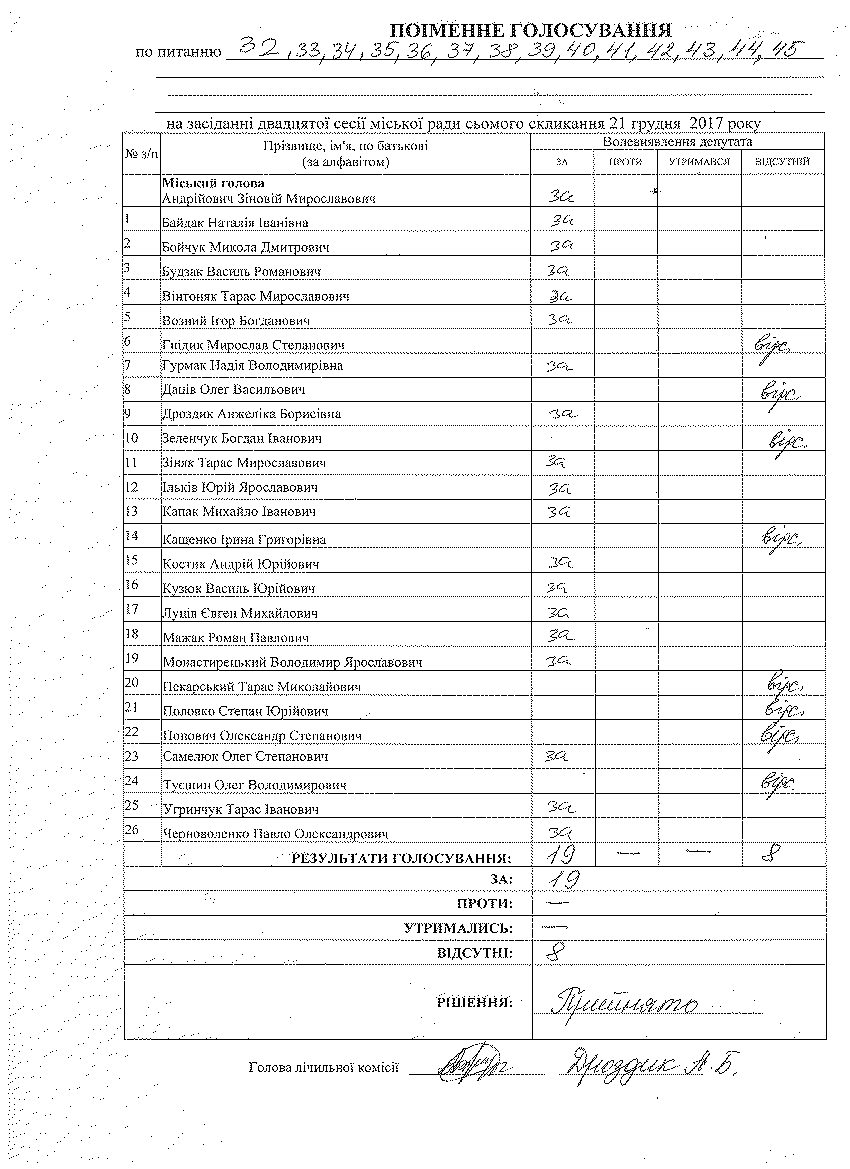 ПОІМЕННЕ ГОЛОСУВАННЯ
по питанню 32, 33, 34, 35, 36, 37, 38, 39, 40, 41, 42, 43, 44, 45
на засіданні двадцятої сесії міської ради сьомого скликання 21 грудня 2017 року
№ з/п Прізвище, ім'я, по батькові (за алфавітом) Волевиявлення депутата
ЗА ПРОТИ УТРИМАВСЯ ВІДСУТНІЙ
Міський голова
Андрійович Зіновій Мирославович за
1 Байдак Наталія Іванівна за
2 Бойчук Микола Дмитрович за
3 Будзак Василь Романович за
4 Вінтоняк Тарас Мирославович за
5 Возний Ігор Богданович за
6 Гнідик Мирослав Степанович відс.
7 Гурмак Надія Володимирівна за
8 Даців Олег Васильович відс.
9 Дроздик Анжеліка Борисівна за
10 Зеленчук Богдан Іванович відс.
11 Зіняк Тарас Мирославович за
12 Ільків Юрій Ярославович за
13 Капак Михайло Іванович за
14 Кащенко Ірина Григорівна відс.
15 Костюк Андрій Юрійович за
16 Кузюк Василь Юрійович за
17 Луців Євген Михайлович за
18 Мажак Роман Павлович за
19 Монастирецький Володимир Ярославович за
20 Пекарський Тарас Миколайович відс.
21 Половко Степан Юрійович відс.
22 Попович Олександр Степанович відс.
23 Самелюк Олег Степанович за
24 Туєшин Олег Володимирович відс.
25 Угринчук Тарас Іванович за
26 Черноволенко Павло Олександрович за
РЕЗУЛЬТАТИ ГОЛОСУВАННЯ: 19 — — 8
ЗА: 19
ПРОТИ: —
УТРИМАЛИСЬ: —
ВІДСУТНІ: 8
РІШЕННЯ: Прийнято
Голова лічильної комісії Дроздик А. Б.